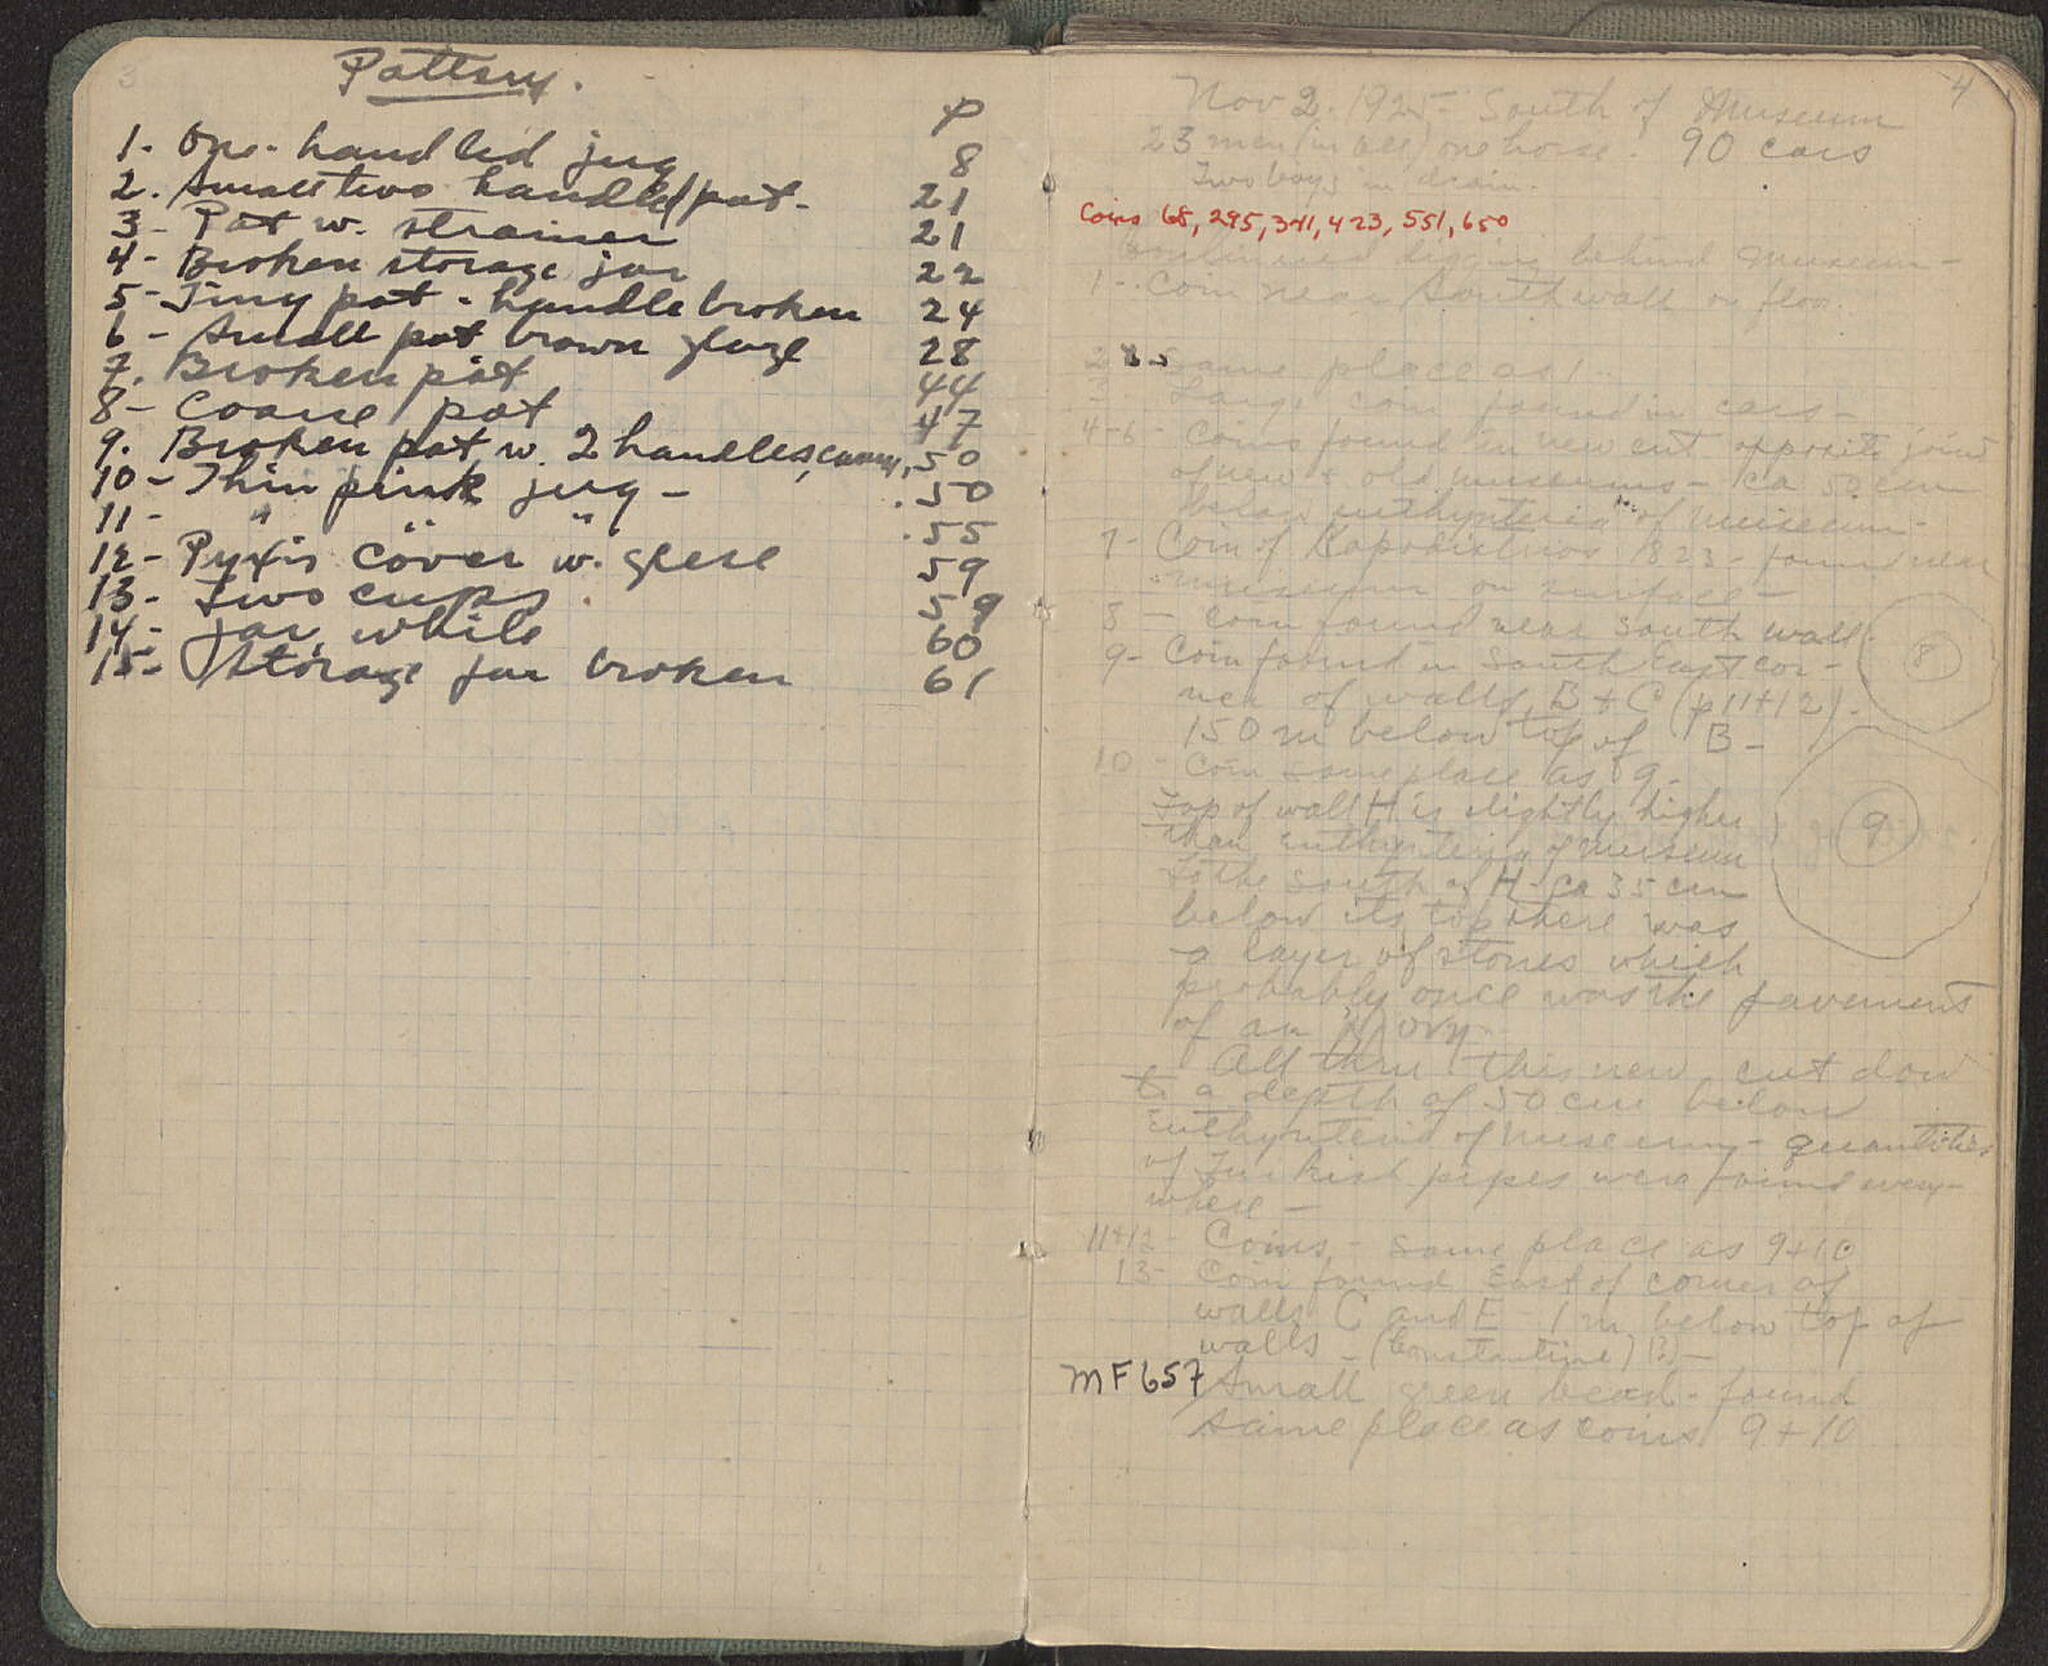 3
Pottery.
P
1. One-handled jug 8
2. Small two handled pot - 21
3 - Pot w. strainer 21
4 - Broken storage jar 22
5 - Tiny pot - handle broken 24
6 - Small pot brown glaze 28
7. Broken pot 44
8 - Coarse pot 47
9. Broken pot w. 2 handles, 50
10 - Thin pink jug - 50
11 - " " " 55
12 - Pyxis cover w. geese 59
13 - Two cups 59
14 - jar, white 60
15 - Storage jar broken 61
4
Nov 2. 1925 - South of Museum
23 men (in all) one horse. 90 cars
Two boys in drain.
Coins 68, 295, 341, 423, 551, 650
Continued digging behind Museum -
1 - Coin near South wall on floor.
2 - Same place as 1 -
3 - Large coin found in cars -
4-6 - Coins found in new cut opposite joint
of new + old museums - ca 50 cm
below euthynteria of museum -
7 - Coin of Kapodistrios 1823 - found near
museum on surface -
8 - Coin found near south wall.
8
9 - Coin found in South East cor-
ner of walls B + C (p 11+12) -
150 m below top of B -
10 - Coin same place as 9 -
9
Top of wall H is slightly higher
than Euthynteria of museum
To the south of H - ca 35 cm
below its top there was
a layer of stones which
probably once was the pavement
of an
All thru this new cut down
to a depth of 50 cm below
Euthynteria of museum - quantities
of Turkish pipes were found every-
where -
11+12 - Coins, - same place as 9+10
13 - Coin found East of corner of
walls C and E 1 m below top of
walls - (Constantine) (?) -
MF 657 Small green bead - found
same place as coins 9 + 10